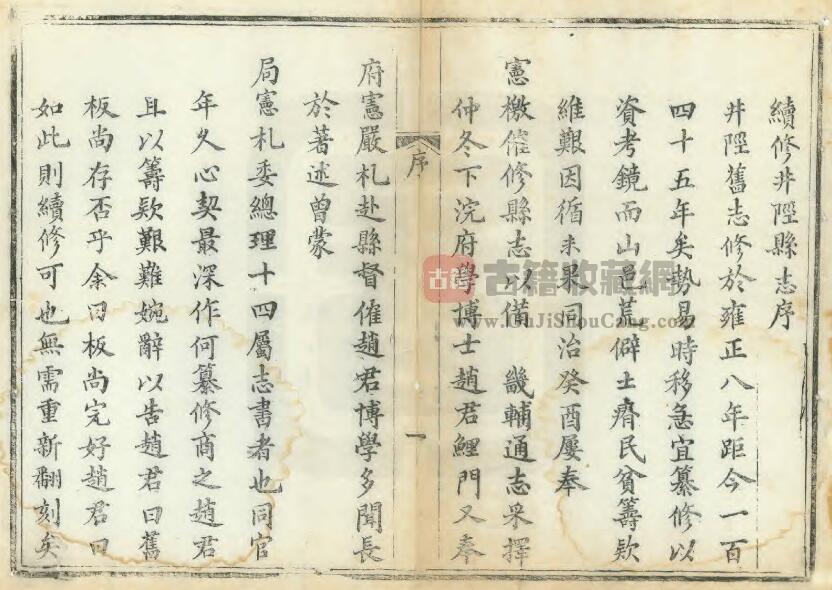 續修井陘縣志序
井陘舊志修於雍正八年距今一百
四十五年矣勢易時移急宜纂修以
資考鏡而山邑荒僻土瘠民貧籌欵
維艱因循未果同治癸酉屢奉
憲檄催修縣志以備 畿輔通志采擇
仲冬下浣府學博士趙君鯉門又奉
序
一
府憲嚴札赴縣督催趙君博學多聞長
於著述曾蒙
局憲札委總理十四屬志書者也同官
年久心契最深作何纂修商之趙君
且以籌欵艱難婉辭以告趙君曰舊
板尚存否乎余曰板尚完好趙君曰
如此則續修可也無需重新翻刻矣
古籍
古籍收藏網
www.GuJiShouCang.com